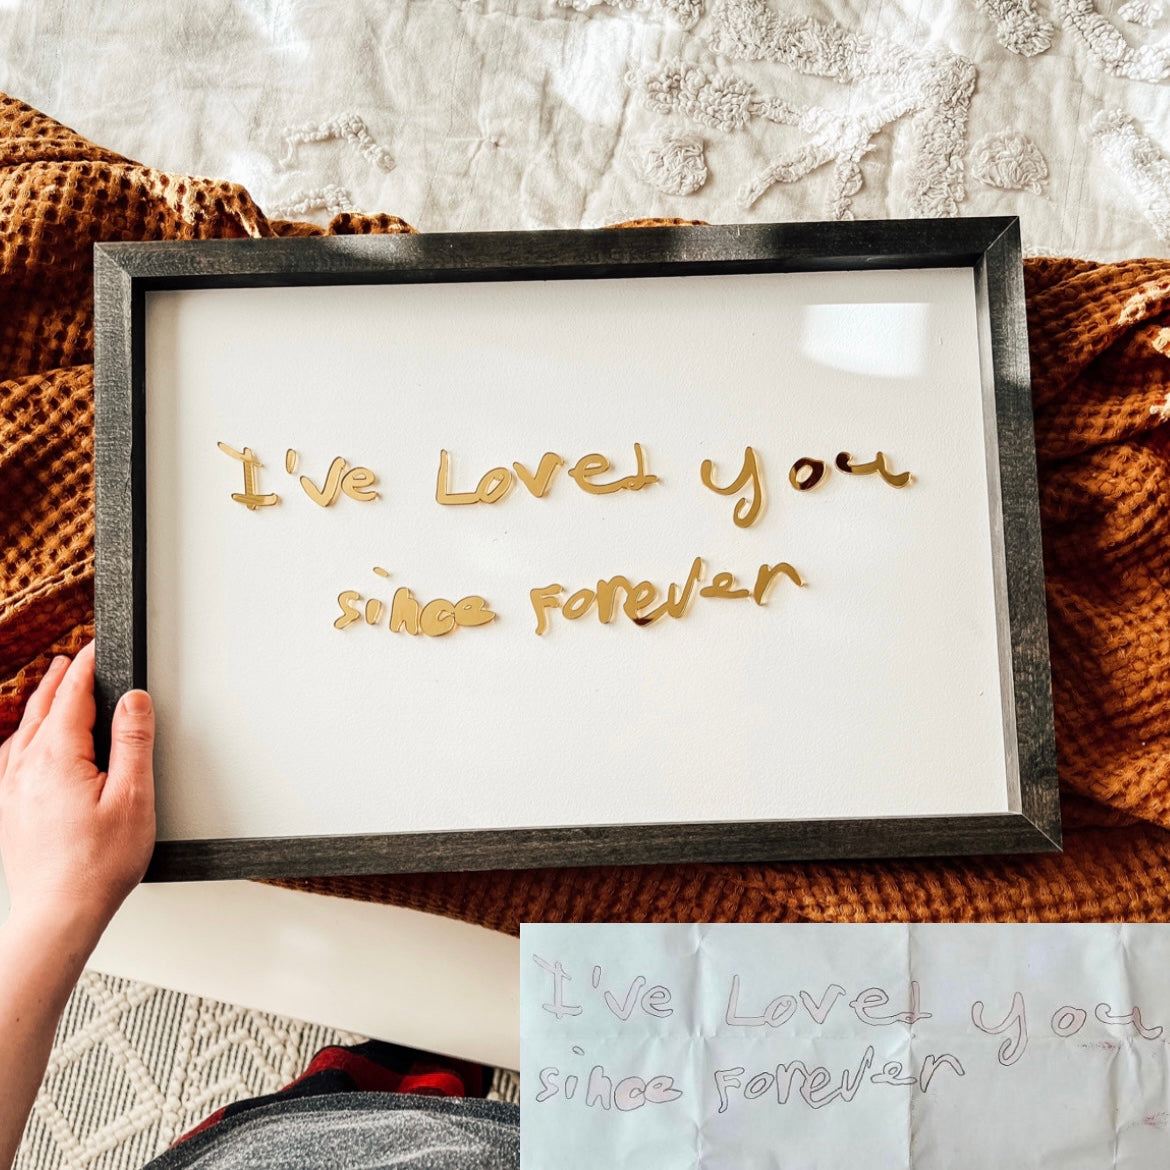 I've Loved you
since Forever
I've Loved you
since Forever